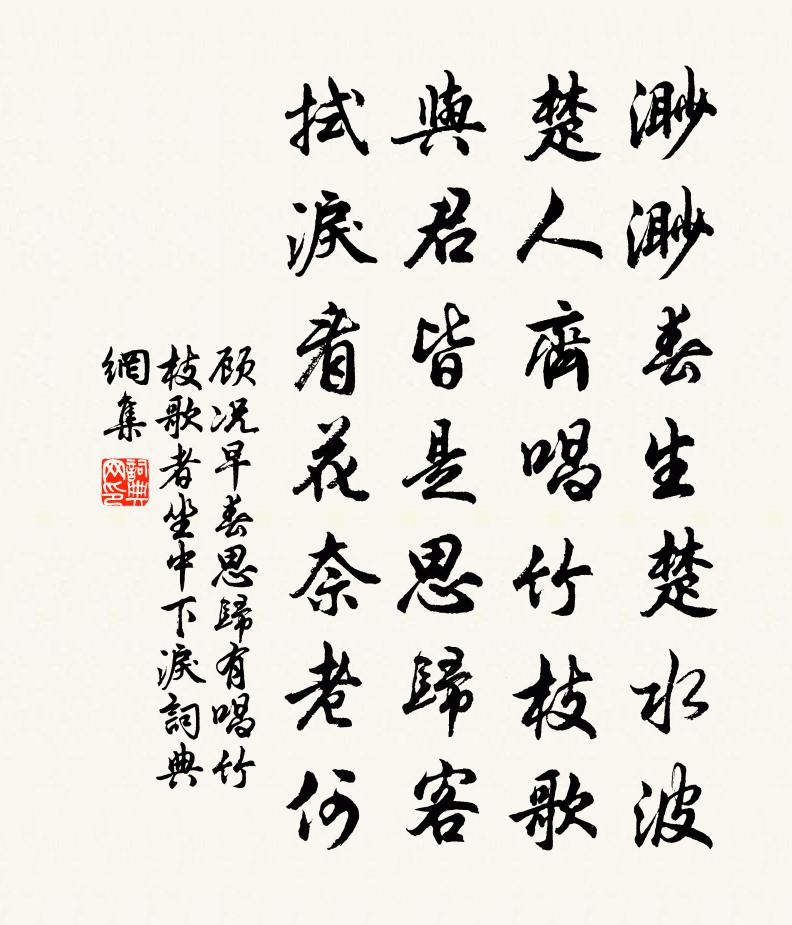 渺渺春生楚水波
楚人齊唱竹枝歌
與君皆是思歸客
拭淚看花奈老何
顾况早春思歸有唱竹
枝歌者坐中下淚詞典
網集
詞典
网印